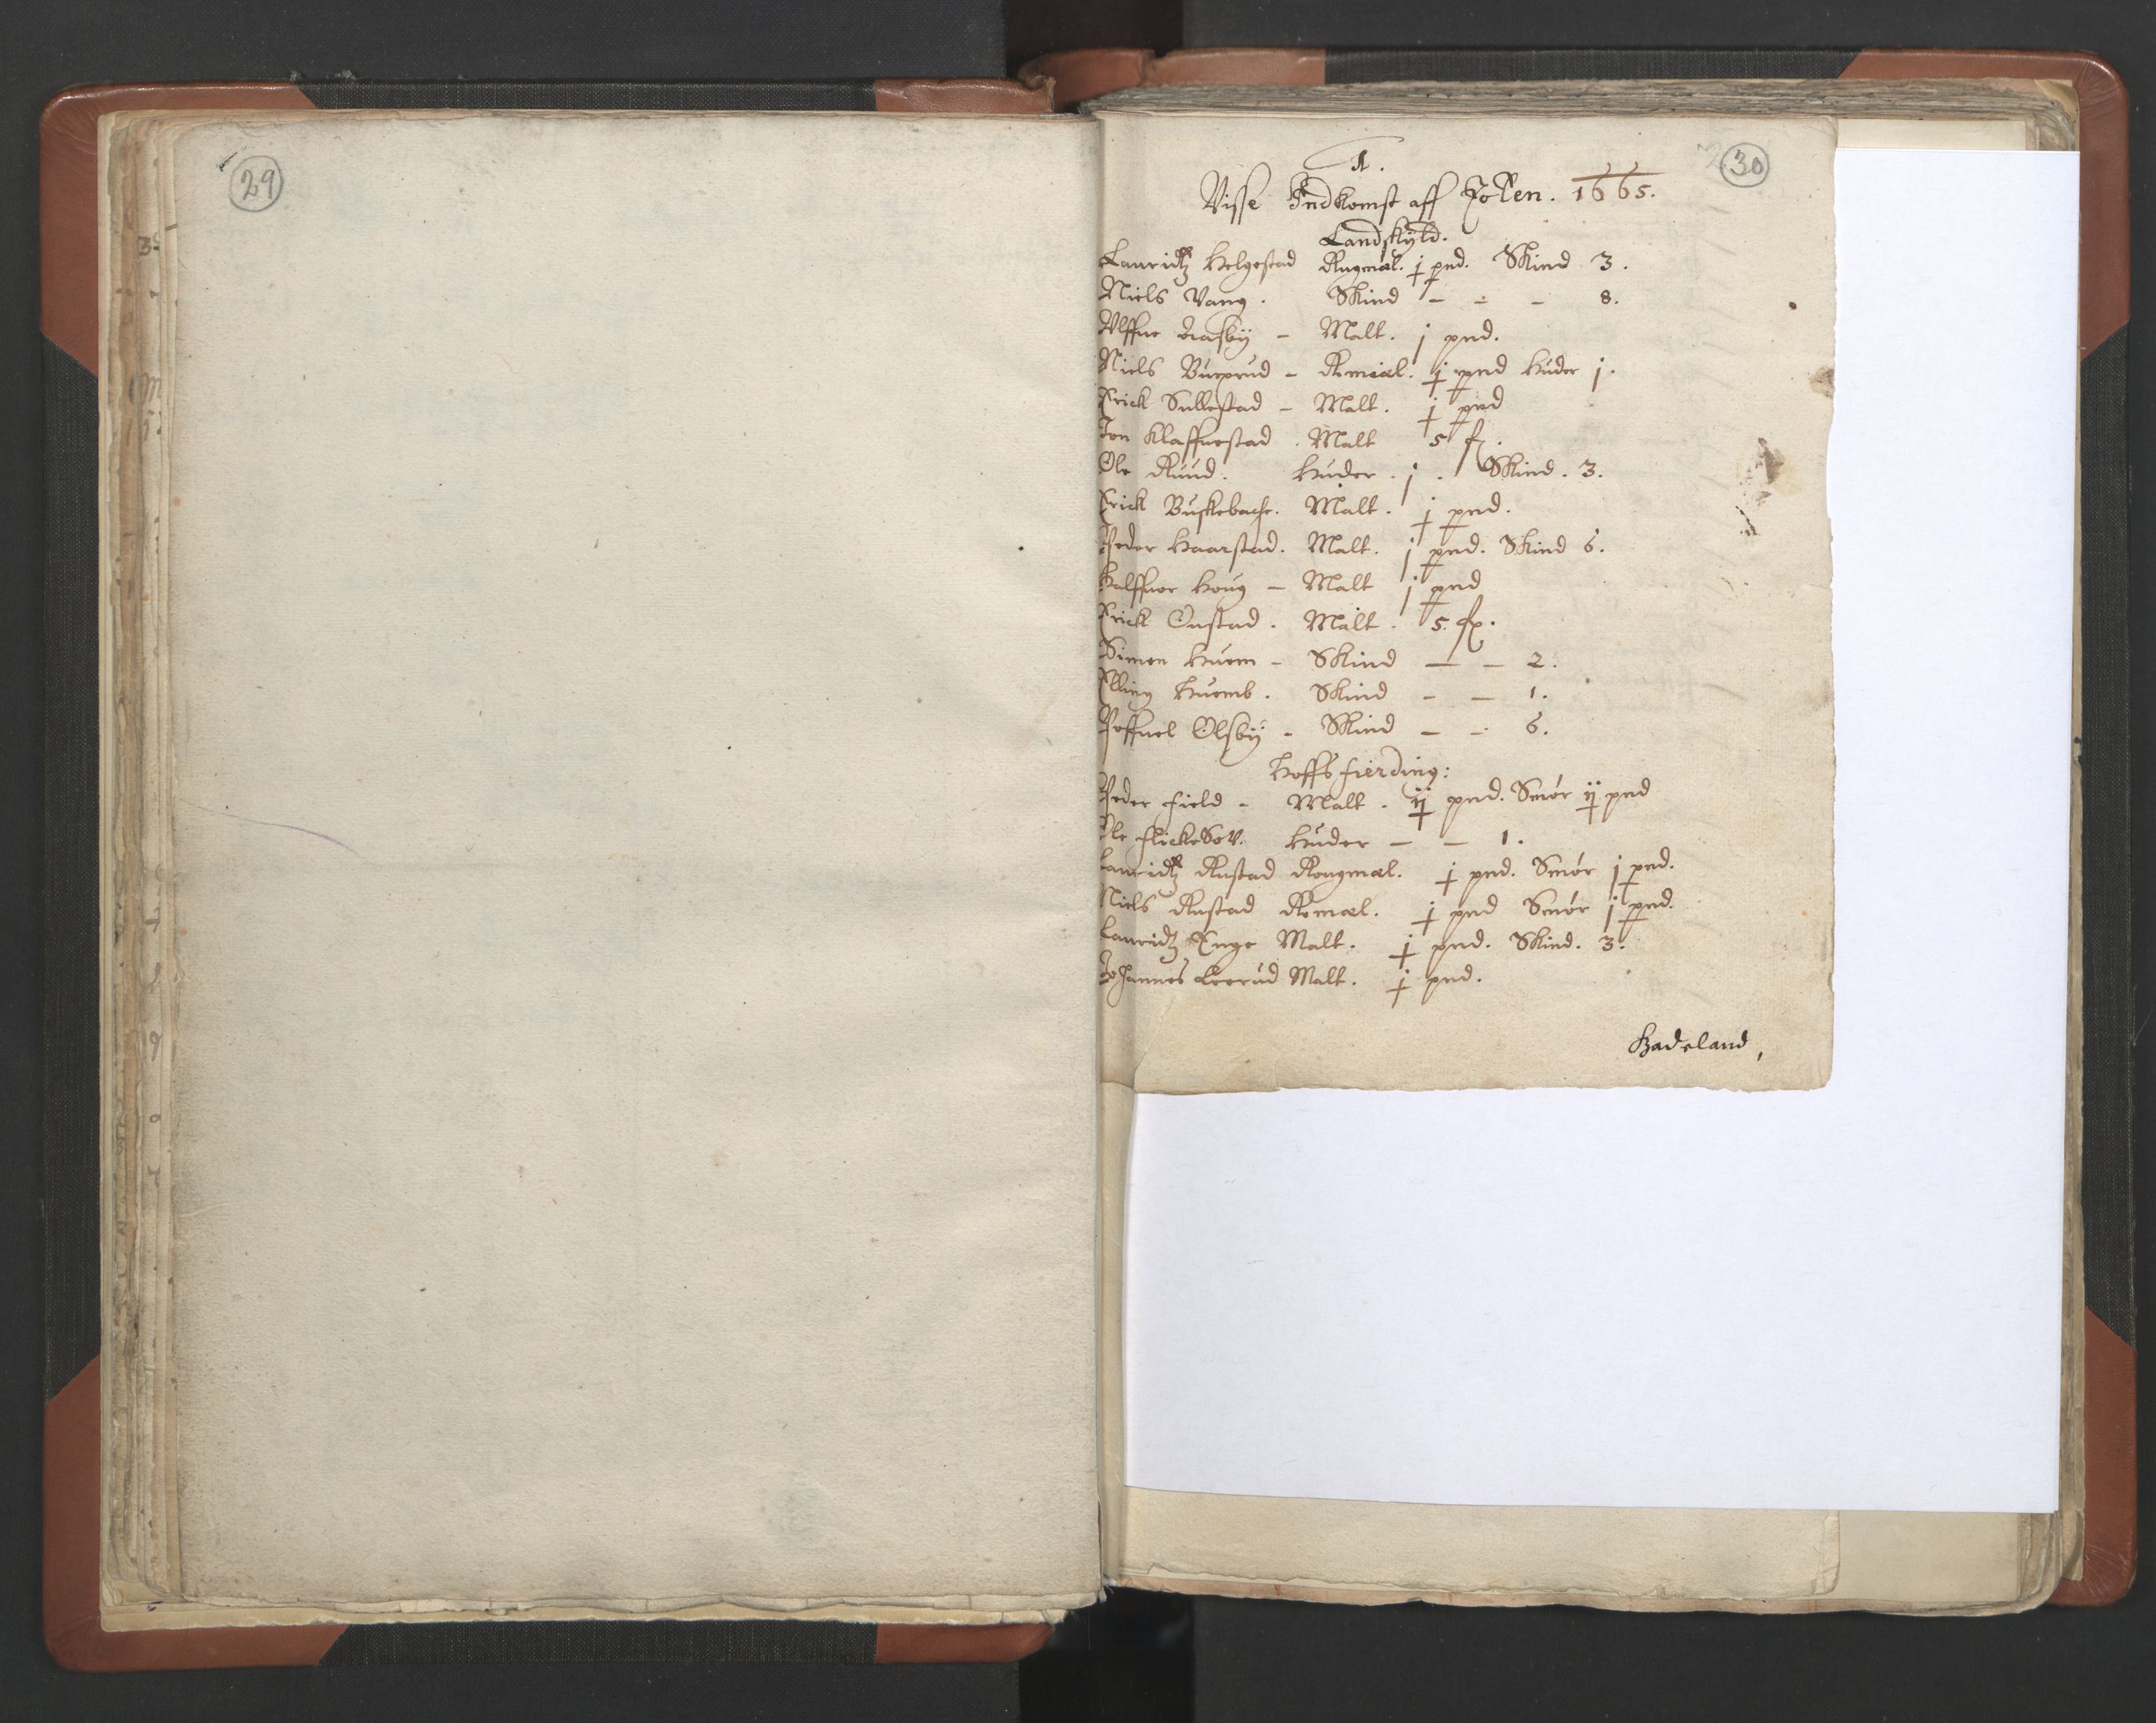 29
30
1.
Visse Indkomst aff Joten. 1665.
Landskyld.
Lauridtz Helgestad Rugmæl. j pnd. Skind 3.
Niels Vang. Skind - - - 8.
Malt. j pnd.
Niels - Rmæl. j pnd Huder j.
Erick Sullestad - Malt. j pnd
Jon Klaffuestad. Malt 5 fr.
Ole Ruud. Huder. j. Skind. 3.
Erick Buskebache. Malt. j pnd.
Peder Haarstad. Malt. j pnd. Skind 6.
Halffuor Houg - Malt j pnd
Erick Onstad. Malt. 5. fr.
Simen Huem - Skind - - 2.
Elling Huemb. Skind - - 1.
Poffuel Olsby - Skind - - 6.
Hoffs fierding:
Peder Field - Malt. ij pnd. Smør ij pnd
Ole Huder - - 1.
Lauridtz Rustad Rougmæl. j pnd. Smør j pnd.
Niels Rustad Rmæl. j pnd Smør j pnd.
Lauridtz Enge Malt. j pnd. Skind. 3.
Johannes Leerud Malt. j pnd.
Hadeland,